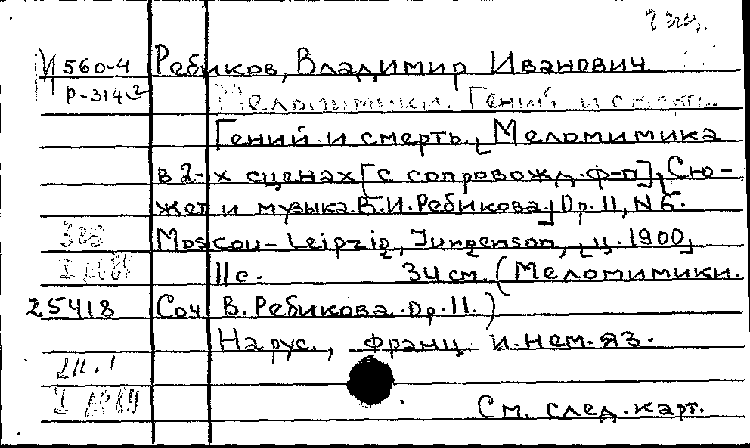 2 экз.
М 560-4 Ребиков, Владимир Иванович
Р-314 2
Меломимики. Гений и смерть.
Гений и смерть. [Меломимика
в 2-х сценах [с сопровожд. ф-п], Сю-
жет и музыка В.И. Ребикова] Op. 11, N 6.
Moscou-Leipzig, Jurgenson, [ц. 1900]
11 с. 34 см. (Меломимики.
25418 Соч. В. Ребикова. Op. 11.)
На рус., франц. и нем. яз.
См. след. карт.